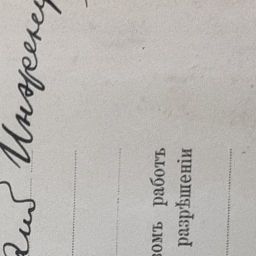 Инженер
вомъ работъ
разрѣшеніи